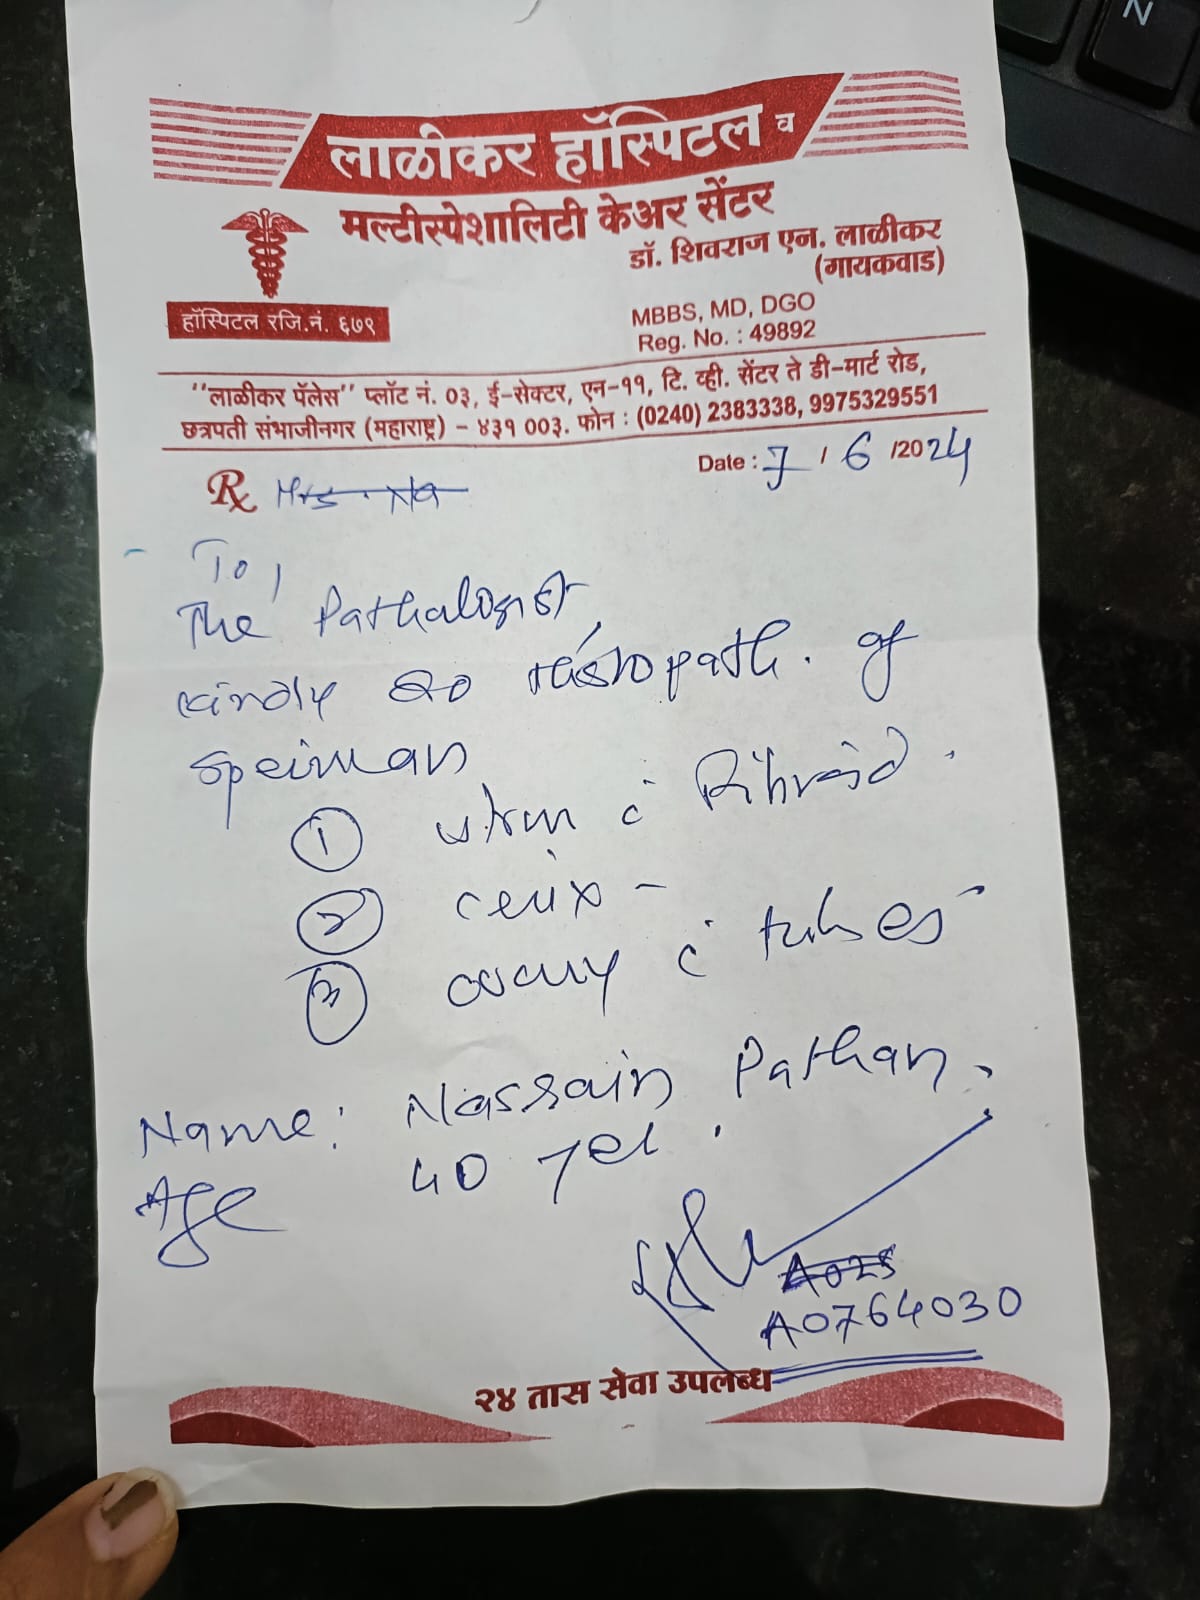 लाळीकर हॉस्पिटल व
मल्टीस्पेशालिटी केअर सेंटर
डॉ. शिवराज एन. लाळीकर
(गायकवाड)
हॉस्पिटल रजि.नं. ६७९
MBBS, MD, DGO
Reg. No. : 49892
"लाळीकर पॅलेस" प्लॉट नं. ०३, ई-सेक्टर, एन-११, टि. व्ही. सेंटर ते डी-मार्ट रोड,
छत्रपती संभाजीनगर (महाराष्ट्र) - ४३१ ००३. फोन : (0240) 2383338, 9975329551
Date : 7 / 6 /2024
Rx Mrs. Na
To,
The Pathalogist,
kindly do histopath. of
speiman
1 utrus c̄ Fibroid.
2 cevix -
3 ovary c̄ tubes
Name: Nassain Pathan.
Age 40 yer.
A025
A0764030
२४ तास सेवा उपलब्ध